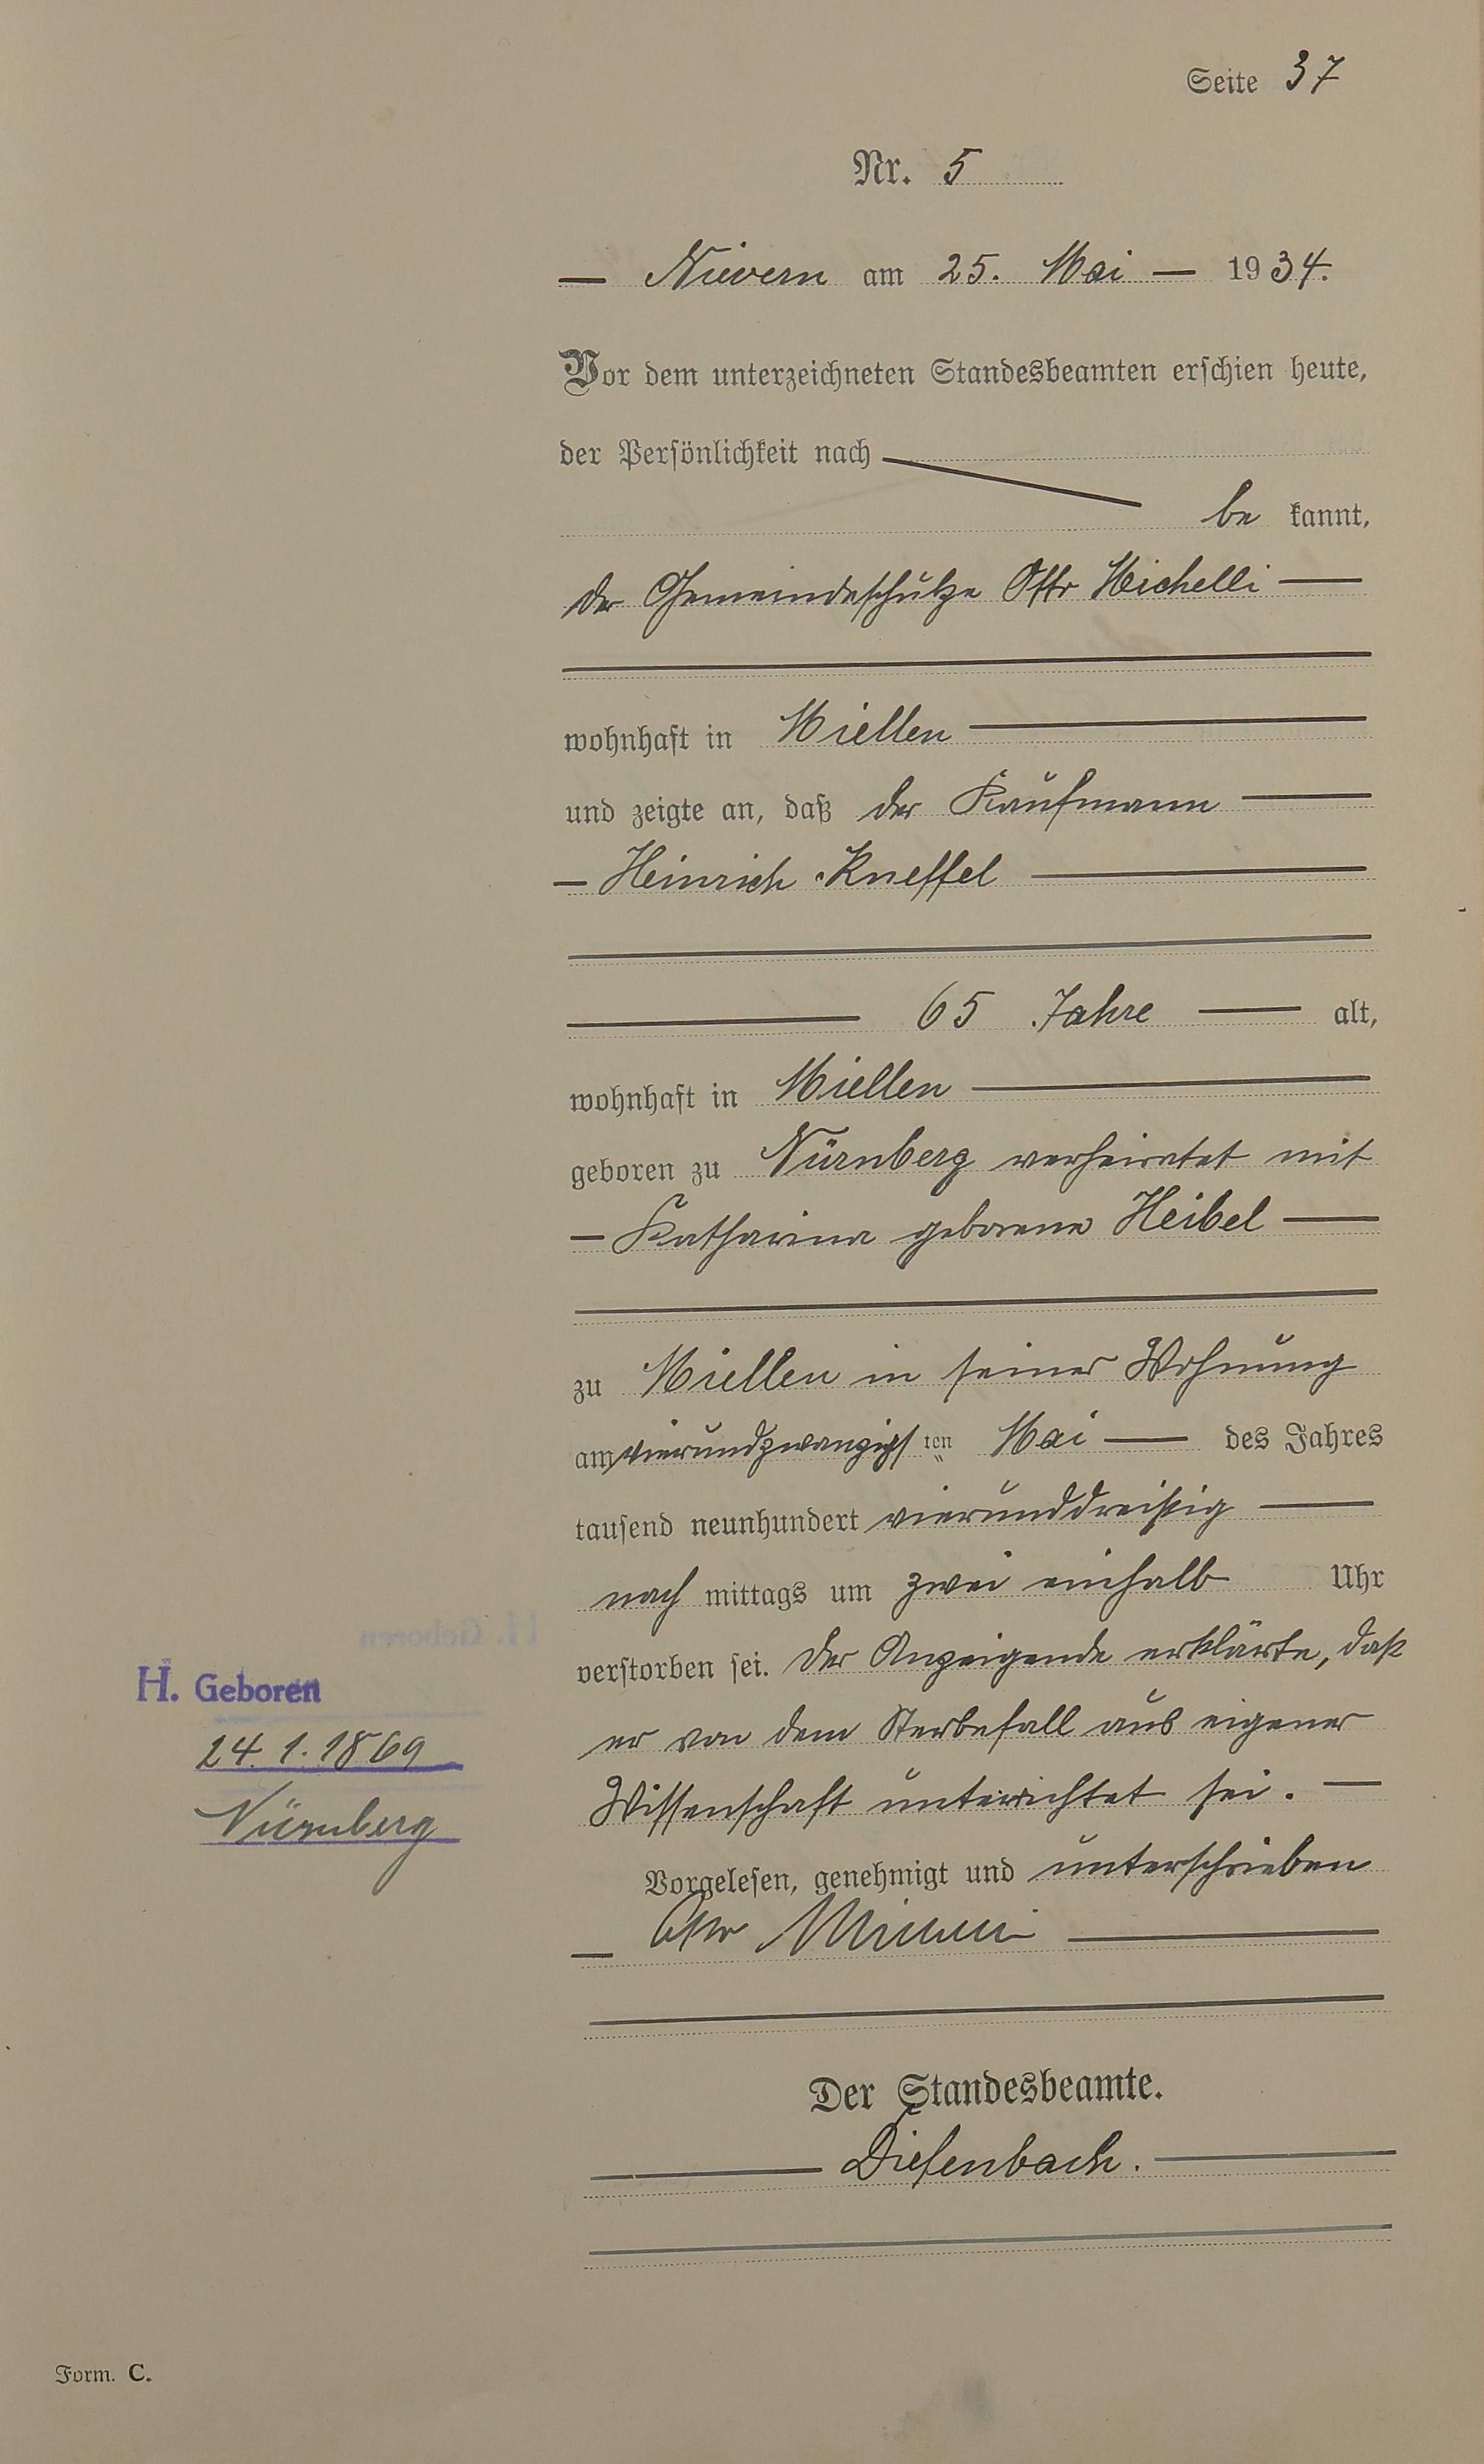 Seite 37
Nr. 5
— Nievern am 25. Mai — 1934.
Vor dem unterzeichneten Standesbeamten erschien heute,
der Persönlichkeit nach
be kannt,
der Gemeindeschütze Otto Michelli —
wohnhaft in Miellen —
und zeigte an, daß der Kaufmann —
— Heinrich Kneffel —
— 65 Jahre — alt,
wohnhaft in Miellen —
geboren zu Nürnberg verheiratet mit
— Katharina geborene Heibel —
zu Miellen in seiner Wohnung
am vierundzwanzigsten Mai — des Jahres
tausend neunhundert vierunddreißig —
nach mittags um zwei einhalb Uhr
verstorben sei. Der Anzeigende erklärte, daß
er von dem Sterbefall aus eigener
Wissenschaft unterrichtet sei. —
Vorgelesen, genehmigt und unterschrieben
— Otto
Der Standesbeamte.
— Diefenbach. —
H. Geboren
24.1.1869
Nürnberg
Form. C.